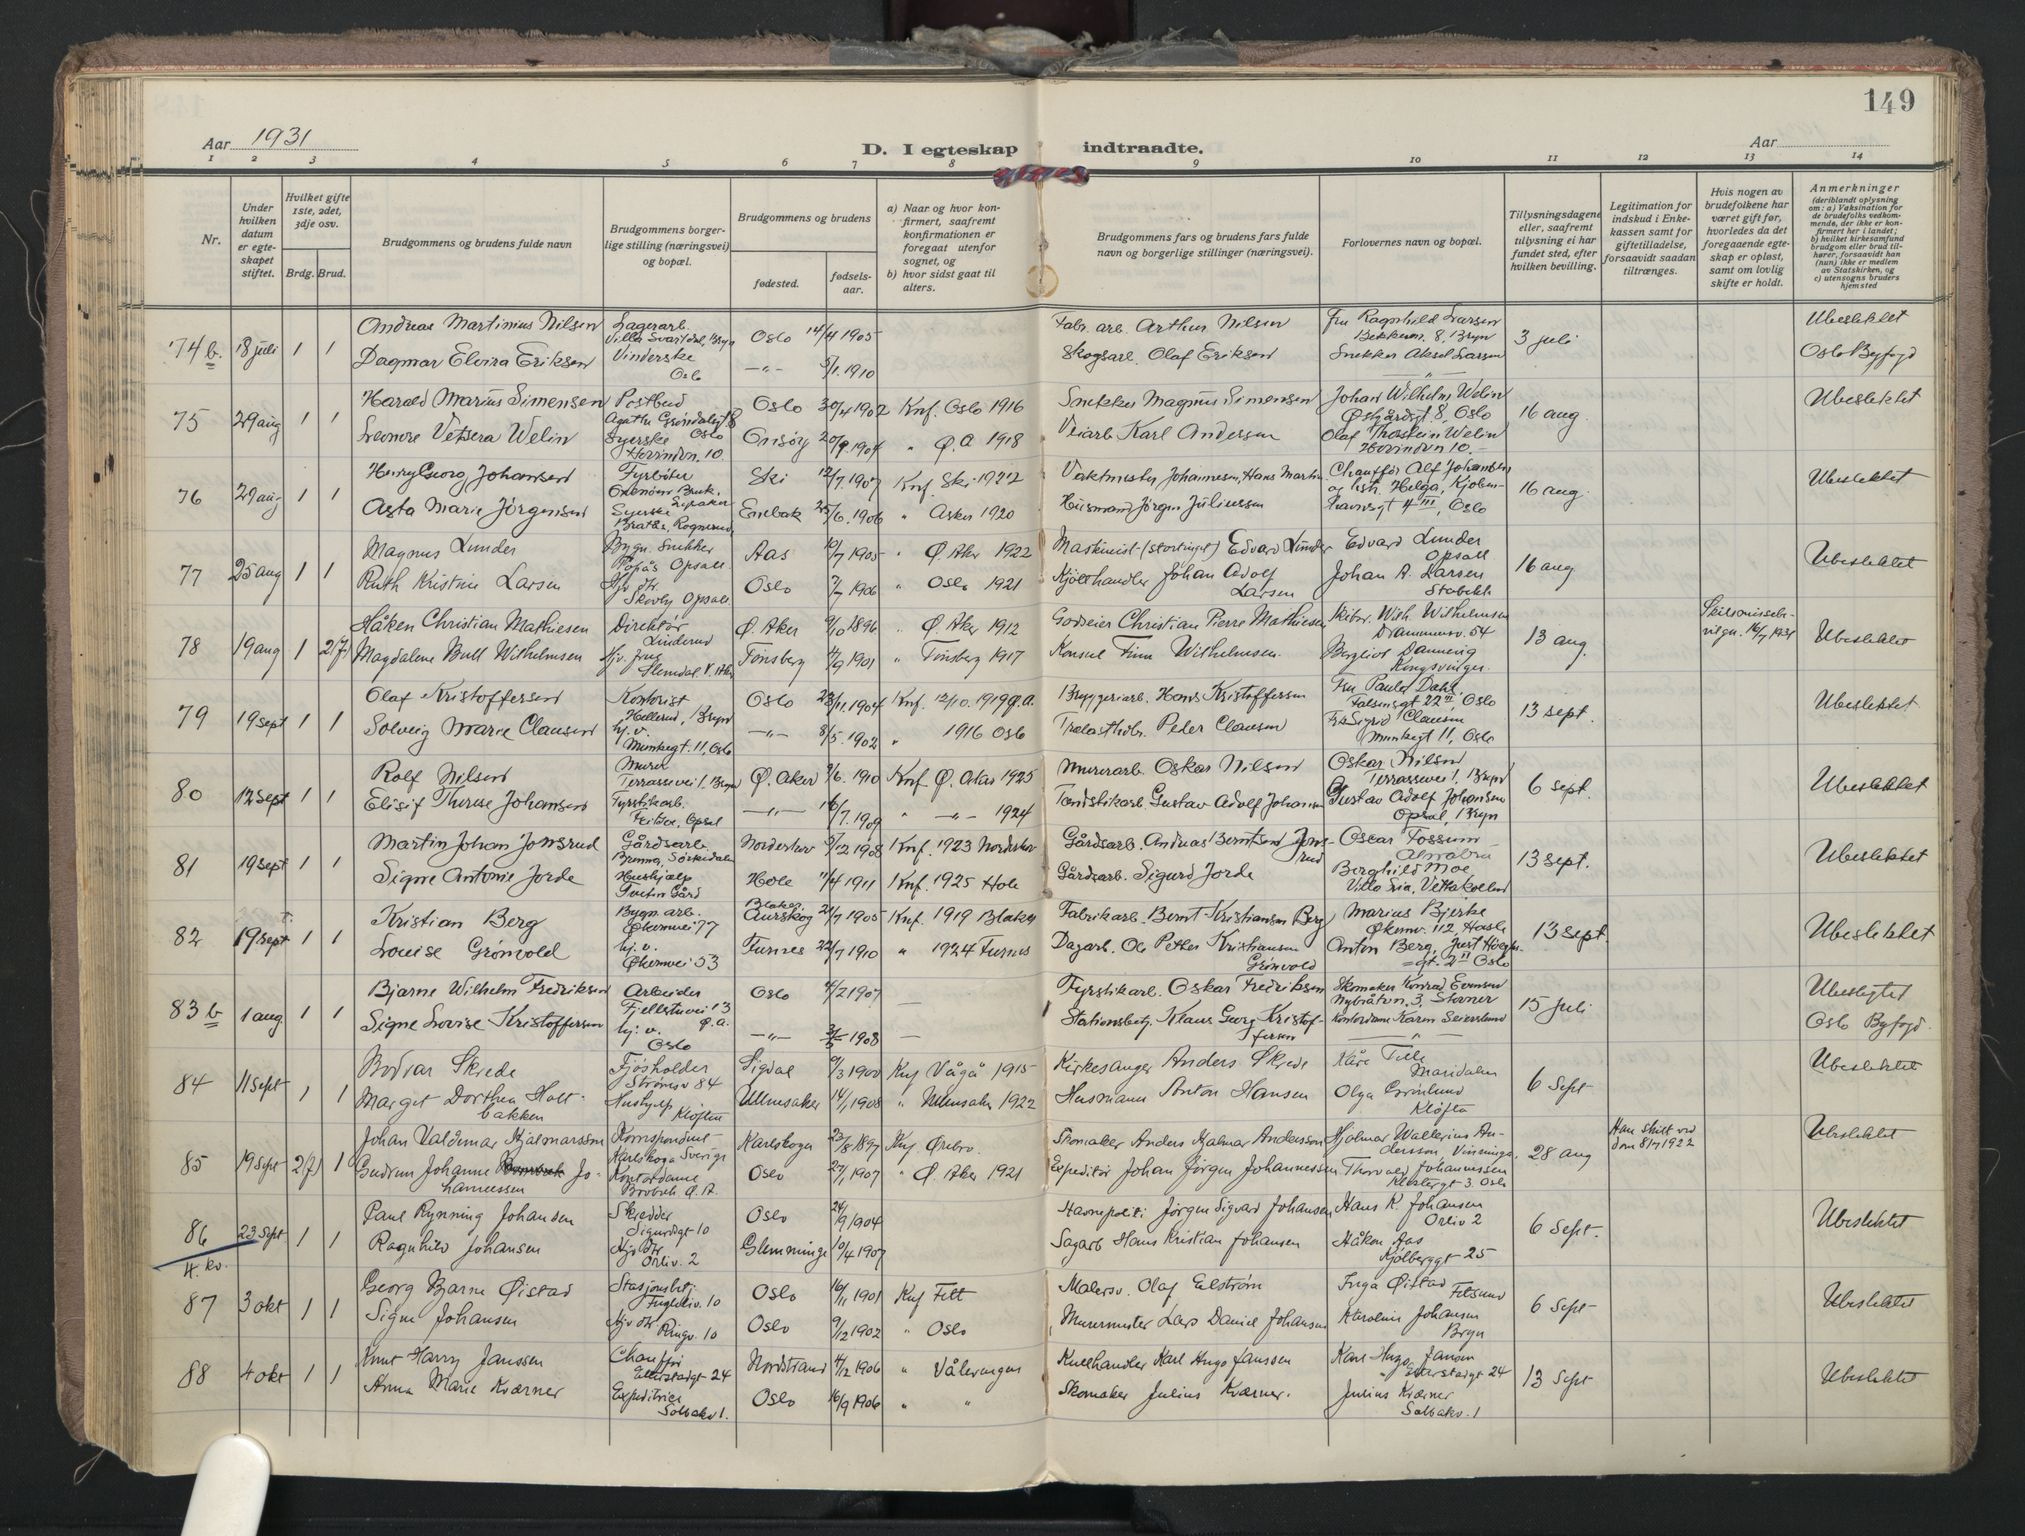 149
Aar 1931
D. I egteskap indtraadte.
Aar
1 2 3 4 5 6 7 8 9 10 11 12 13 14
Nr.
Under hvilken datum er egteskapet stiftet.
Hvilket gifte 1ste, 2det, 3dje osv.
Brdg. Brud.
Brudgommens og brudens fulde navn
Brudgommens borgerlige stilling (næringsvei) og bopæl.
Brudgommens og brudens
fødested.
fødselsaar.
a) Naar og hvor konfirmert, saafremt konfirmationen er foregaat utenfor sognet, og
b) hvor sidst gaat til alters.
Brudgommens fars og brudens fars fulde navn og borgerlige stillinger (næringsvei).
Forlovernes navn og bopæl.
Tillysningsdagene eller, saafremt tillysning ei har fundet sted, efter hvilken bevilling.
Legitimation for indskud i Enkekassen samt for giftetilladelse, forsaavidt saadan tiltrænges.
Hvis nogen av brudefolkene har været gift før, hvorledes da det foregaaende egteskap er opløst, samt om lovlig skifte er holdt.
Anmerkninger (deriblandt oplysning om: a) Vaksination for de brudefolks vedkommende, der ikke er konfirmert her i landet; b) hvilket kirkesamfund brudgom eller brud tilhører, forsaavidt han (hun) ikke er medlem av Statskirken, og c) utensogns bruders hjemsted
74 b. 18 juli 1 1 Andreas Martinius Nilsen Lagerarb. Villa Svartdal, Bryn Oslo 14/4 1905 Fabr. arb. Arthur Nilsen Fru Ragnhild Larsen 8, Bryn 3 juli Ubeslektet
Dagmar Elvira Eriksen Vinderske Oslo —"— 5/1. 1910 Skogsarb. Olaf Eriksen Snekker Aksel Larsen Oslo Byfogd
75 29 aug 1 1 Harald Marius Simensen Postbud Agathe Grøndalsgt 8 Oslo Oslo 30/4 1902 Knf. Oslo 1916 Snekker Magnus Simensen Johan Wilhelm Welin Østgårdsgt. 8, Oslo 16 aug. Ubeslektet
Leonore Vetsera Welin Syerske Hovindvn. 10. Onsøy 20/9. 1904 " Ø. A. 1918 Veiarb Karl Andersen Olaf Thorstein Welin Hovindvn 10.
76 29 aug 1 1 Henry Georg Johansen Fyrbøter Ski 12/7. 1907 Knf. Ski 1922 Vaktmester Johannesen, Hans Martin Chauffør Alf Johansen 16 aug. Ubeslektet
Asta Marie Jörgensen Syerske Enebak 25/6. 1906 " Asker 1920 Husmand Jörgen Juliussen og Helga, Kjøbenhavnsgt 4 III, Oslo
77 25 aug 1 1 Magnus Lunder Bygn. Snekker Opsall Aas 10/7 1905 " Ø. Aker 1922 Maskinist (Stortinget) Edvard Lunder Edvard Lunder Opsall 16 aug Ubeslektet
Ruth Kristine Larsen Hj. dtr. Skovly Opsall. Oslo 7/7 1906 " Oslo 1921 Kjötthandler Johan Adolf Larsen Johan A. Larsen
78 19 aug 1 2(f) Håken Christian Mathiesen Direktør Linderud Ø. Aker 9/10 1896 " Ø. Aker 1912 Godseier Christian Pierre Mathiesen Skibsr. Wilh. Wilhelmsen Drammensv. 54 13 aug. 16/7 1931 Ubeslektet
Magdalene Bull Wilhelmsen Hj. frue Slemdal V. Aker Tønsberg 4/9 1901 " Tønsberg 1917 Konsul Finn Wilhelmsen Bergliot Dannevig Kongsvinger.
79 19 sept 1 1 Olaf Kristoffersen Kontorist Hellerud, Bryn Oslo 23/11. 1904 Knf. 12/10. 1919 Ø. A. Bryggeriarb. Hans Kristoffersen Fru Paula Dahl, Falsensgt 22 II, Oslo 13 sept. Ubeslektet
Solveig Marie Clausen hj. v. Munkegt. 11, Oslo —"— 8/5. 1902 " 1916 Oslo Trælasthdlr. Peder Clausen Frk Sigrid Clausen Munkegt 11, Oslo
80 12 sept 1 1 Rolf Nilsen Murer Terrassevei 1, Bryn Ø. Aker 9/6. 1910 Knf Ø. Aker 1925 Murerarb. Oskar Nilsen Oskar Nilsen Terrassevei 1, Bryn 6 sept. Ubeslektet
Elisif Therese Johansen Fyrstikarb. Opsal —"— 16/7. 1909 " —"— 1924 Tændstikarb. Gustav Adolf Johansen Gustav Adolf Johansen Opsal, Bryn
81 19 sept 1 1 Martin Johan Jonsrud Gårdsarb. Brenna, Sørkedalen Norderhov 5/12 1908 Knf. 1923 Norderhov Gårdsarb. Andreas Berntsen Jonsrud Oscar Fossum Alnabru 13 sept. Ubeslektet
Signe Antonie Jorde Hushjælp Tveten Gård Hole 11/4 1911 Knf. 1925 Hole Gårdsarb. Sigurd Jorde Borghild Moe Villa Lia, Vettakollen
82 19 sept 1 1 Kristian Berg Bygn. arb. Økernvei 77 Blaker, Aurskog 21/7 1905 Knf. 1919 Blaker Fabrikarb. Bernt Kristiansen Berg Marius Bjerke Økernv. 112, Hasle 13 sept. Ubeslektet
Louise Grönvold hj. v. Økernvei 53 Furnes 22/7 1910 " 1924 Furnes Dagarb. Ole Petter Kristiansen Grönvold Anton Berg, Just Høeghsgt. 2 II Oslo
83 b 1 aug. 1 1 Bjarne Wilhelm Fredriksen Arbeider Fjellstuvei 13 Ø. A. Oslo 4/2 1907 — Fyrstikarb. Oskar Fredriksen Skomaker Konrad Evensen Nybråtvn. 3, 15 juli Ubeslegtet
Signe Lovise Kristoffersen hj. v. Oslo —"— 3/5 1908 — Stationsbetj. Klaus Georg Kristoffersen Kontordame Karen Seierslund Oslo Byfogd.
84 11 sept 1 1 Bodvar Skrede Fjøsholder Strømsv 84 Sigdal 9/3 1900 Knf Vågå 1915 Kirkesanger Anders Skrede Kåre Maridalen 6 Sept Ubeslektet
Margit Dorthea Holtbakken Hushjelp Kløften Ullensaker 14/1 1908 " Ullensaker 1922 Husmann Anton Hansen Olga Grönlund Kløfta
85 19 sept 2(f) 1 Johan Valdemar Hjalmarsson Korrespondent Karlskoga Sverige Karlskoga 23/8 1897 Knf Ørebro. Skomaker Anders Hjalmar Andersson Hjalmar Wallerius Andersson, 28 aug Han skilt ved dom 8/7 1922 Ubeslektet
Gudrun Johanne Johannessen Kontordame Ø. A. Oslo 27/1 1907 " Ø. Aker 1921 Expeditör Johan Jörgen Johannessen Thorvald Johannessen 3. Oslo
86 23 sept. 1 1 Paul Rynning Johansen Skredder Sigurdsgt 10 Oslo 24/9 1904 Havnepoliti Jörgen Sigvard Johansen Hans K. Johansen Orliv. 2 6 Sept. Ubeslektet
4. kv. Ragnhild Johansen Hjv dtr Orliv. 2 Glemminge 10/4 1907 Sagarb Hans Kristian Johansen Håkon Aas Kjølberggt 25
87 3 okt 1 1 Georg Bjarne Øistad Stasjonsbetj. Fugleliv. 10 Oslo 16/11 1901 Knf Fett Malersv. Olaf Elström Inga Øistad Fetsund 6 Sept Ubeslektet
Signe Johansen Hjv dtr Ringv. 10 Oslo 9/12 1902 " Oslo Murermester Lars Daniel Johansen Karoline Johansen Bryn
88 4 okt 1 1 Knut Harry Janssen Chauffør 24 Nordstrand 4/12 1906 " Vålerengen Kullhandler Karl Hugo Janssen Karl Hugo Jansen 24 13 Sept Ubeslektet
Anna Marie Kværner Expeditrice Solbakv 1. Oslo 16/9 1906 " " Skomaker Julius Kværner. Julius Kværner Solbakv. 1